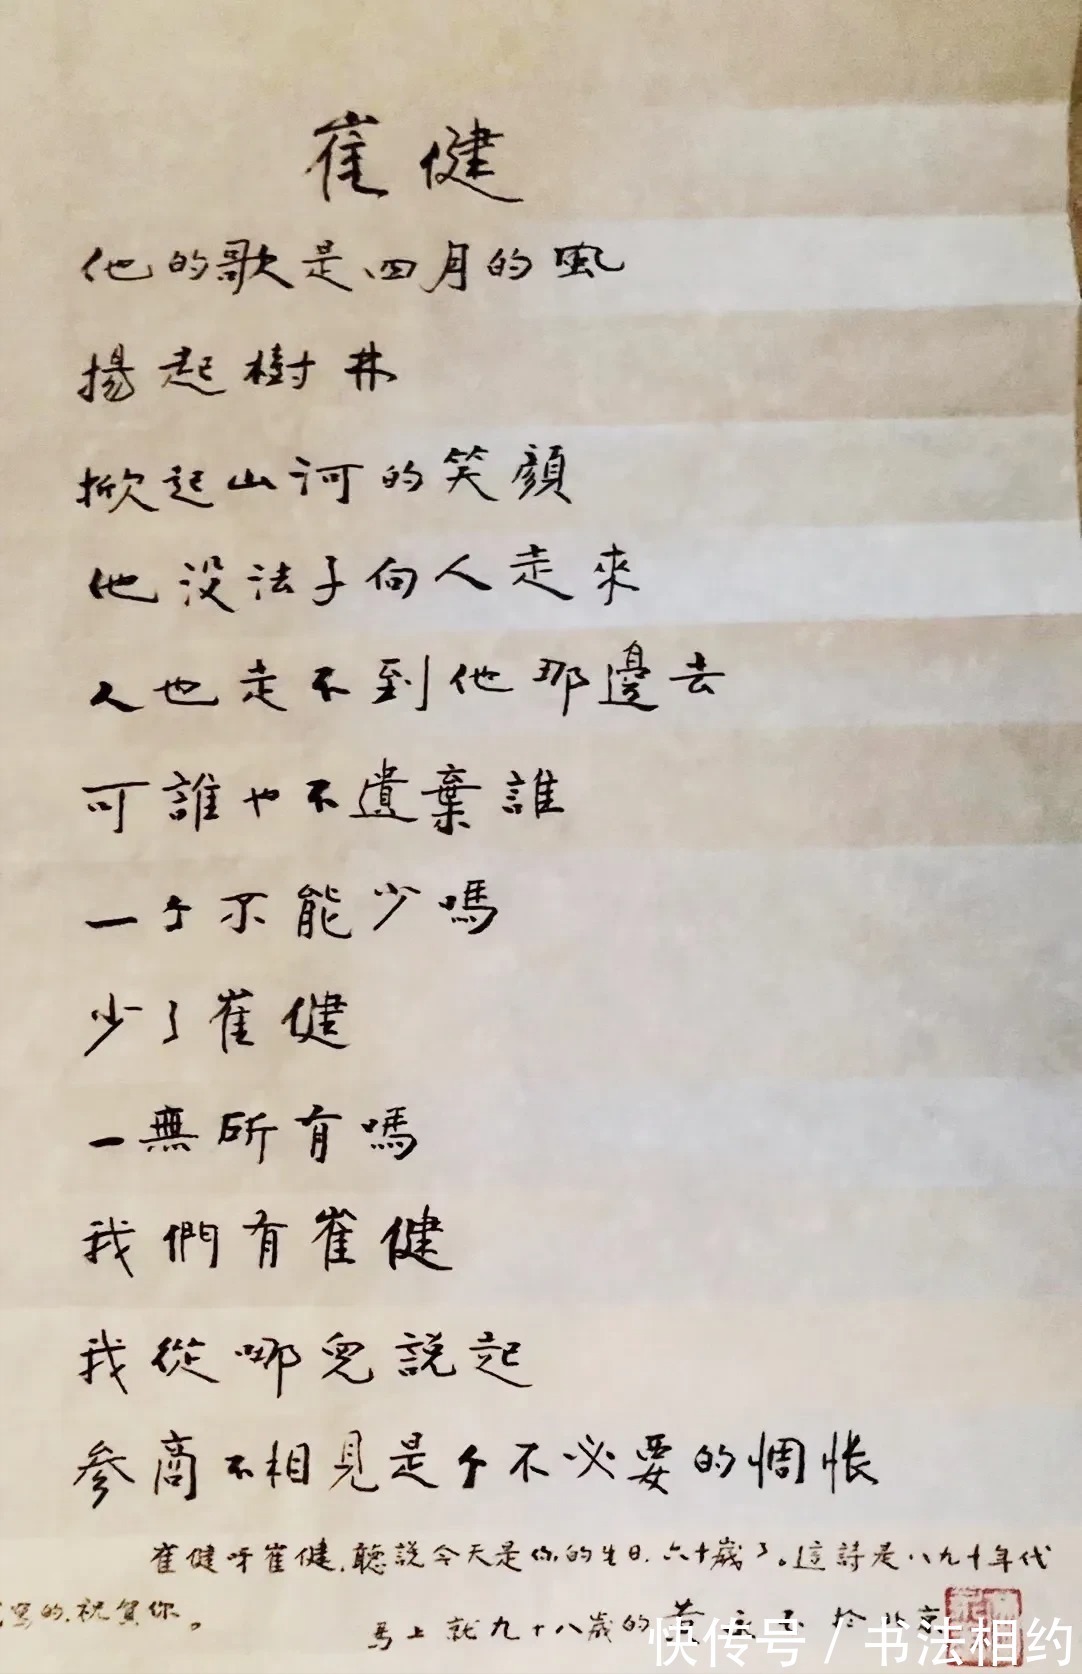 崔健
他的歌是四月的風
揚起樹林
掀起山河的笑顔
他没法子向人走來
人也走不到他那邊去
可誰也不遺棄誰
一个不能少嗎
少了崔健
一無所有嗎
我們有崔健
我從哪兒説起
參商不相見是个不必要的惆悵
崔健呀崔健，聽説今天是你的生日，六十歲了。這詩是八九十年代
寫的，祝賀你。
馬上就九十八歲的黄永玉於北京
快传号 / 书法相约